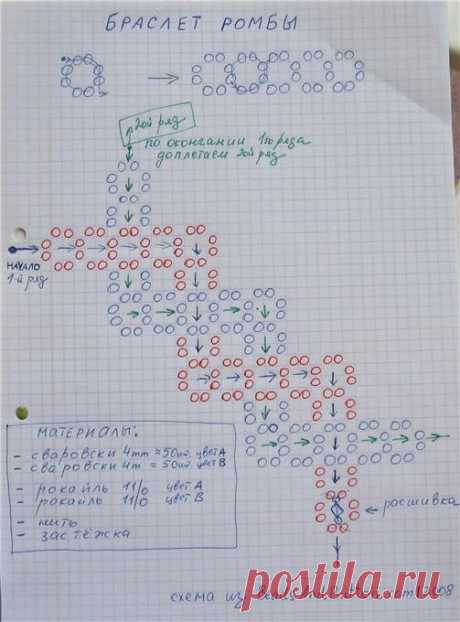 БРАСЛЕТ РОМБЫ
2ой ряд
по окончании 1го ряда
доплетаем 2ой ряд
НАЧАЛО
1-й ряд
МАТЕРИАЛЫ:
- сваровски 4mm ≈50шт. цвет A
- сваровски 4m ≈50шт. цвет B
- рокайль 11/0 цвет A
- рокайль 11/0 цвет B
- нить
- застёжка
расшивка
схема из
postila.ru